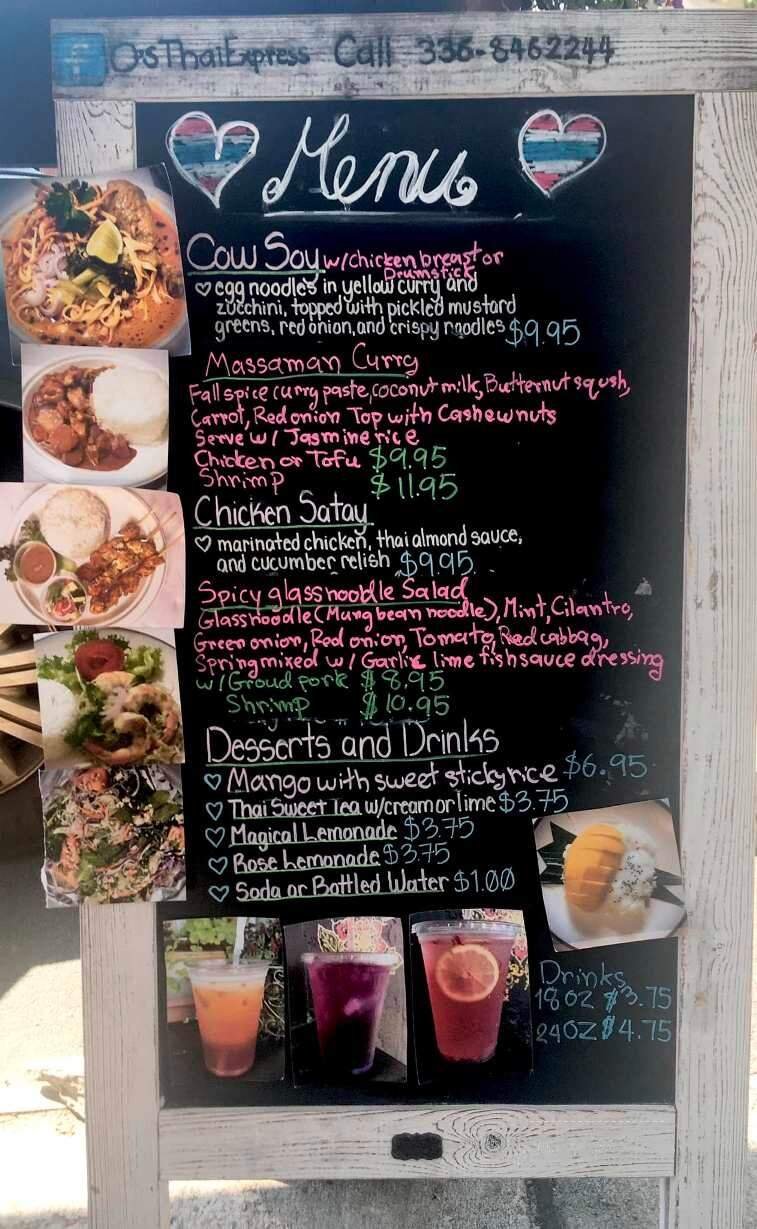 f O'sThaiExpress Call 336-8462244
Menu
Cow Soy w/chicken breast or
Drumstick
egg noodles in yellow curry and
zucchini, topped with pickled mustard
greens, red onion, and crispy noodles $9.95
Massaman Curry
Fall spice curry paste, coconut milk, Butternut sqush,
Carrot, Red onion Top with Cashewnuts
Serve w/ Jasmine rice
Chicken or Tofu $9.95
Shrimp $11.95
Chicken Satay
marinated chicken, thai almond sauce,
and cucumber relish $9.95
Spicy glassnoodle Salad
Glassnoodle (Mung bean noodle), Mint, Cilantro,
Green onion, Red onion, Tomato, Red cabbag,
Spring mixed w/ Garlic lime fishsauce dressing
w/Groud pork $8.95
Shrimp $10.95
Desserts and Drinks
Mango with sweet stickyrice $6.95
Thai Sweet Tea w/cream or lime $3.75
Magical Lemonade $3.75
Rose Lemonade $3.75
Soda or Bottled Water $1.00
Drinks
18oz $3.75
24oz $4.75